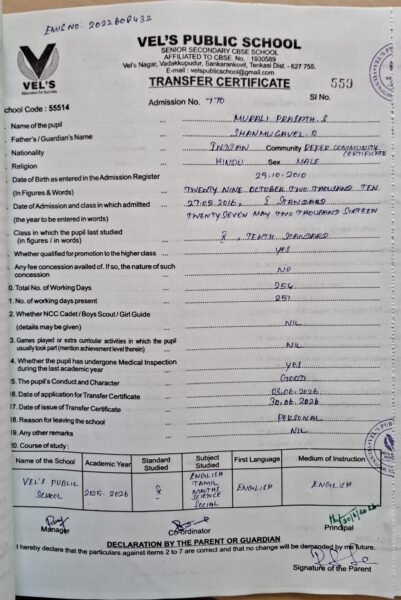 EMIS NO: 2022608432
VEL'S
Education for Success
VEL'S PUBLIC SCHOOL
SENIOR SECONDARY CBSE SCHOOL
AFFILIATED TO CBSE. No. : 1930589
Vel's Nagar, Vadakkupudur, Sankarankovil, Tenkasi Dist. - 627 755.
E-mail : velspublicschool@gmail.com
TRANSFER CERTIFICATE 559
Admission No. 770 Sl No.
chool Code : 55514
Name of the pupil ... MURALI PRASATH.S
Father's / Guardian's Name ... SHANMUGAVEL.R
Nationality ... INDIAN Community REFER COMMUNITY CERTIFICATE
Religion ... HINDU Sex MALE
Date of Birth as entered in the Admission Register ... 29.10.2010
(in Figures & Words) ... TWENTY NINE OCTOBER TWO THOUSAND TEN
Date of Admission and class in which admitted ... 27.05.2016, I STANDARD
(the year to be entered in words) TWENTY SEVEN MAY TWO THOUSAND SIXTEEN
Class in which the pupil last studied
(in figures / in words) ... X, TENTH STANDARD
Whether qualified for promotion to the higher class ... YES
Any fee concession availed of. If so, the nature of such
concession ... NO
0. Total No. of Working Days ... 254
1. No. of working days present ... 251
2. Whether NCC Cadet / Boys Scout / Girl Guide
(details may be given) ... NIL
3. Games played or extra curricular activities in which the pupil
usually took part (mention achievement level therein) ... NIL
4. Whether the pupil has undergone Medical Inspection
during the last academic year ... YES
5. The pupil's Conduct and Character ... GOOD
16. Date of application for Transfer Certificate ... 03.06.2026
17. Date of issue of Transfer Certificate ... 30.06.2026
18. Reason for leaving the school ... PERSONAL
19. Any other remarks ... NIL
20. Course of study :
Name of the School Academic Year Standard Studied Subject Studied First Language Medium of Instruction
VEL'S PUBLIC SCHOOL 2025-2026 X ENGLISH TAMIL MATHS SCIENCE SOCIAL ENGLISH ENGLISH
Manager Co-ordinator Principal
DECLARATION BY THE PARENT OR GUARDIAN
I hereby declare that the particulars against Items 2 to 7 are correct and that no change will be demanded by me future.
Signature of the Parent